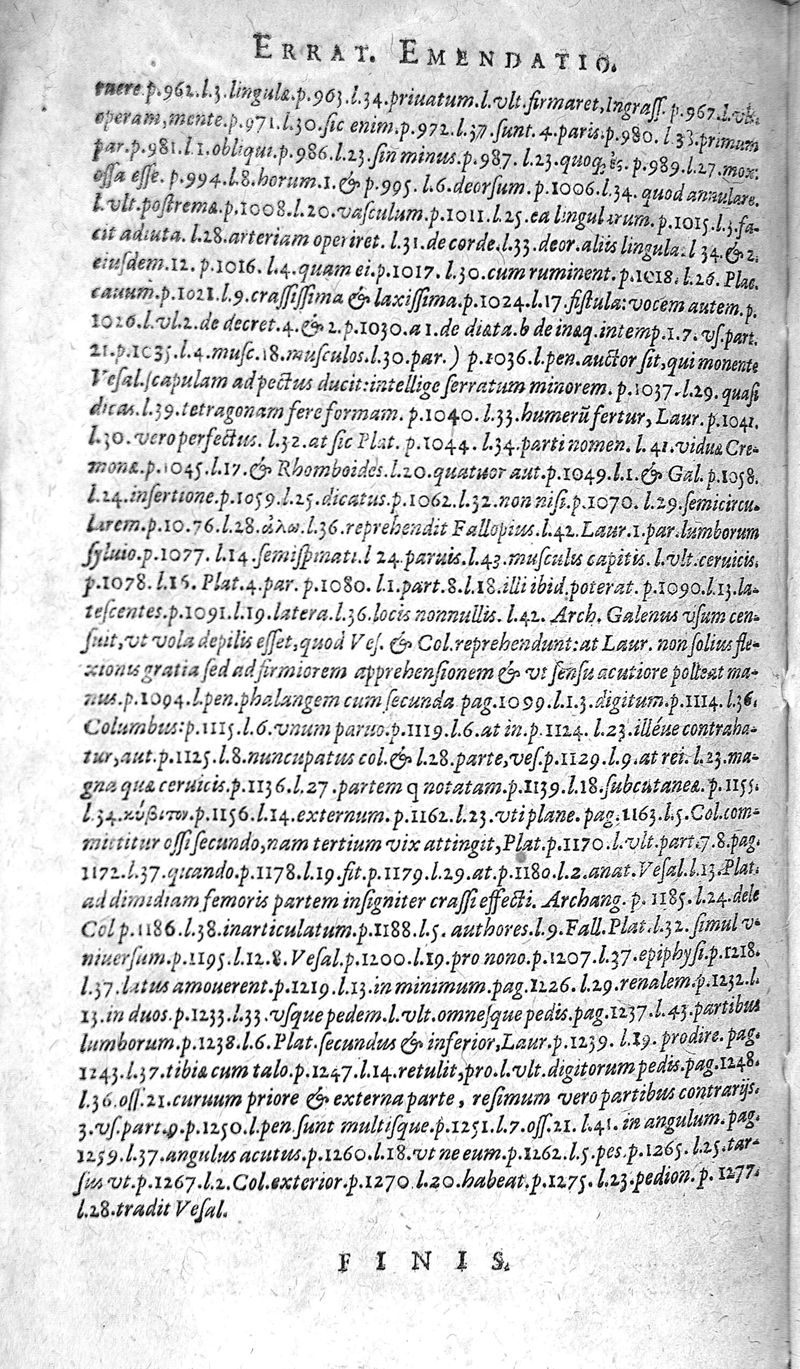 ERRAT. EMENDATIO.
tuere.p.962.l.3.lingulæ.p.963.l.34.priuatum.l.vlt.firmaret,Ingraſſ.p.967.l.vlt.
operam,mente.p.971.l.30.ſic enim.p.972.l.37.ſunt.4.paris.p.980.l.33.primum
par.p.981.l.1.obliqui.p.986.l.23.ſin minus.p.987.l.23.quoq; p.989.l.27.mox:
oſſa eſſe.p.994.l.8.horum.1.&p.995.l.6.deorſum.p.1006.l.34.quod annulare.
l.vlt.poſtrema.p.1008.l.20.vaſculum.p.1011.l.25.ea lingularum.p.1015.l.3.fa-
cit adiuta.l.28.arteriam operiret.l.31.de corde.l.33.deor.aliis lingula:l 34.& 2.
eiuſdem.12.p.1016.l.4.quam ei.p.1017.l.30.cum ruminent.p.1018.l.26.Plac.
cauum.p.1021.l.9.craſſiſſima & laxiſſima.p.1024.l.17.fiſtula:vocem autem.p.
1026.l.vl.2.de decret.4.& 2.p.1030.a 1.de diæta.b de inæq.intemp.1.7.vſ.part.
21.p.1035.l.4.muſc.18.muſculos.l.30.par.) p.1036.l.pen.auctor ſit,qui monente
Veſal.ſcapulam ad pectus ducit:intellige ſerratum minorem.p.1037.l.29.quaſi
dicas.l.39.tetragonam fere formam.p.1040.l.33.humerū fertur,Laur.p.1041.
l.30.vero perfectus.l.32.at ſic Plat.p.1044.l.34.parti nomen.l.41.viduæ Cre-
monæ.p.1045.l.17.& Rhomboides.l.20.quatuor aut.p.1049.l.1.& Gal.p.1058.
l.24.inſertione.p.1059.l.25.dicatus.p.1062.l.32.non niſi.p.1070.l.29.ſemicircu-
larem.p.10.76.l.28.ἀλω.l.36.reprehendit Fallopius.l.42.Laur.1.par.lumborum
ſyluio.p.1077.l.14.ſemiſpinati.l 24.paruis.l.43.muſculus capitis.l.vlt.ceruicis.
p.1078.l.15.Plat.4.par.p.1080.l.1.part.8.l.18.illi ibid,poterat.p.1090.l.13.la-
teſcentes.p.1091.l.19.latera.l.36.locis nonnullis.l.42.Arch.Galenus vſum cen-
ſuit,vt vola depilis eſſet,quod Veſ.& Col.reprehendunt:at Laur.non ſolius fle-
xionis gratia ſed ad firmiorem apprehenſionem & vt ſenſu acutiore polleat ma-
nus.p.1094.l.pen.phalangem cum ſecunda pag.1099.l.1.3.digitum.p.1114.l.36.
Columbus:p.1115.l.6.vnum paruo.p.1119.l.6.at in.p.1124.l.23.illéue contraha-
tur,aut.p.1125.l.8.nuncupatus col.& l.28.parte,veſ.p.1129.l.9.at rei.l.23.ma-
gna quæ ceruicis.p.1136.l.27.partem q notatam.p.1139.l.18.ſubcutanea.p.1155.
l.34.κύβιτον.p.1156.l.14.externum.p.1162.l.23.vti plane.pag.1163.l.5.Col.com-
mittitur oſſi ſecundo,nam tertium vix attingit,Plat.p.1170.l.vlt.part.7.8.pag.
1172.l.37.quando.p.1178.l.19.ſit.p.1179.l.29.at.p.1180.l.2.anat.Veſal.l.13.Plat.
ad dimidiam femoris partem inſigniter craſſi effecti.Archang.p.1185.l.24.dele
Col p.1186.l.38.inarticulatum.p.1188.l.5.authores.l.9.Fall.Plat.l.32.ſimul v-
niuerſum.p.1195.l.12.8.Veſal.p.1200.l.19.pro nono.p.1207.l.37.epiphyſi.p.1218.
l.37.latus amouerent.p.1219.l.13.in minimum.pag.1226.l.29.renalem.p.1232.l.
13.in duos.p.1233.l.33.vſque pedem.l.vlt.omneſque pedis.pag.1237.l.43.partibus
lumborum.p.1238.l.6.Plat.ſecundus & inferior,Laur.p.1239.l.19.prodire.pag.
1243.l.37.tibia cum talo.p.1247.l.14.retulit,pro.l.vlt.digitorum pedis.pag.1248.
l.36.oſſ.21.curuum priore & externa parte, reſimum vero partibus contrarijs.
3.vſ.part.9.p.1250.l.pen.ſunt multiſque.p.1251.l.7.oſſ.21.l.41.in angulum.pag.
1259.l.37.angulus acutus.p.1260.l.18.vt ne eum.p.1262.l.5.pes.p.1265.l.25.tar-
ſius vt.p.1267.l.2.Col.exterior.p.1270.l.20.habeat.p.1275.l.23.pedion.p.1277.
l.28.tradit Veſal.
FINIS.